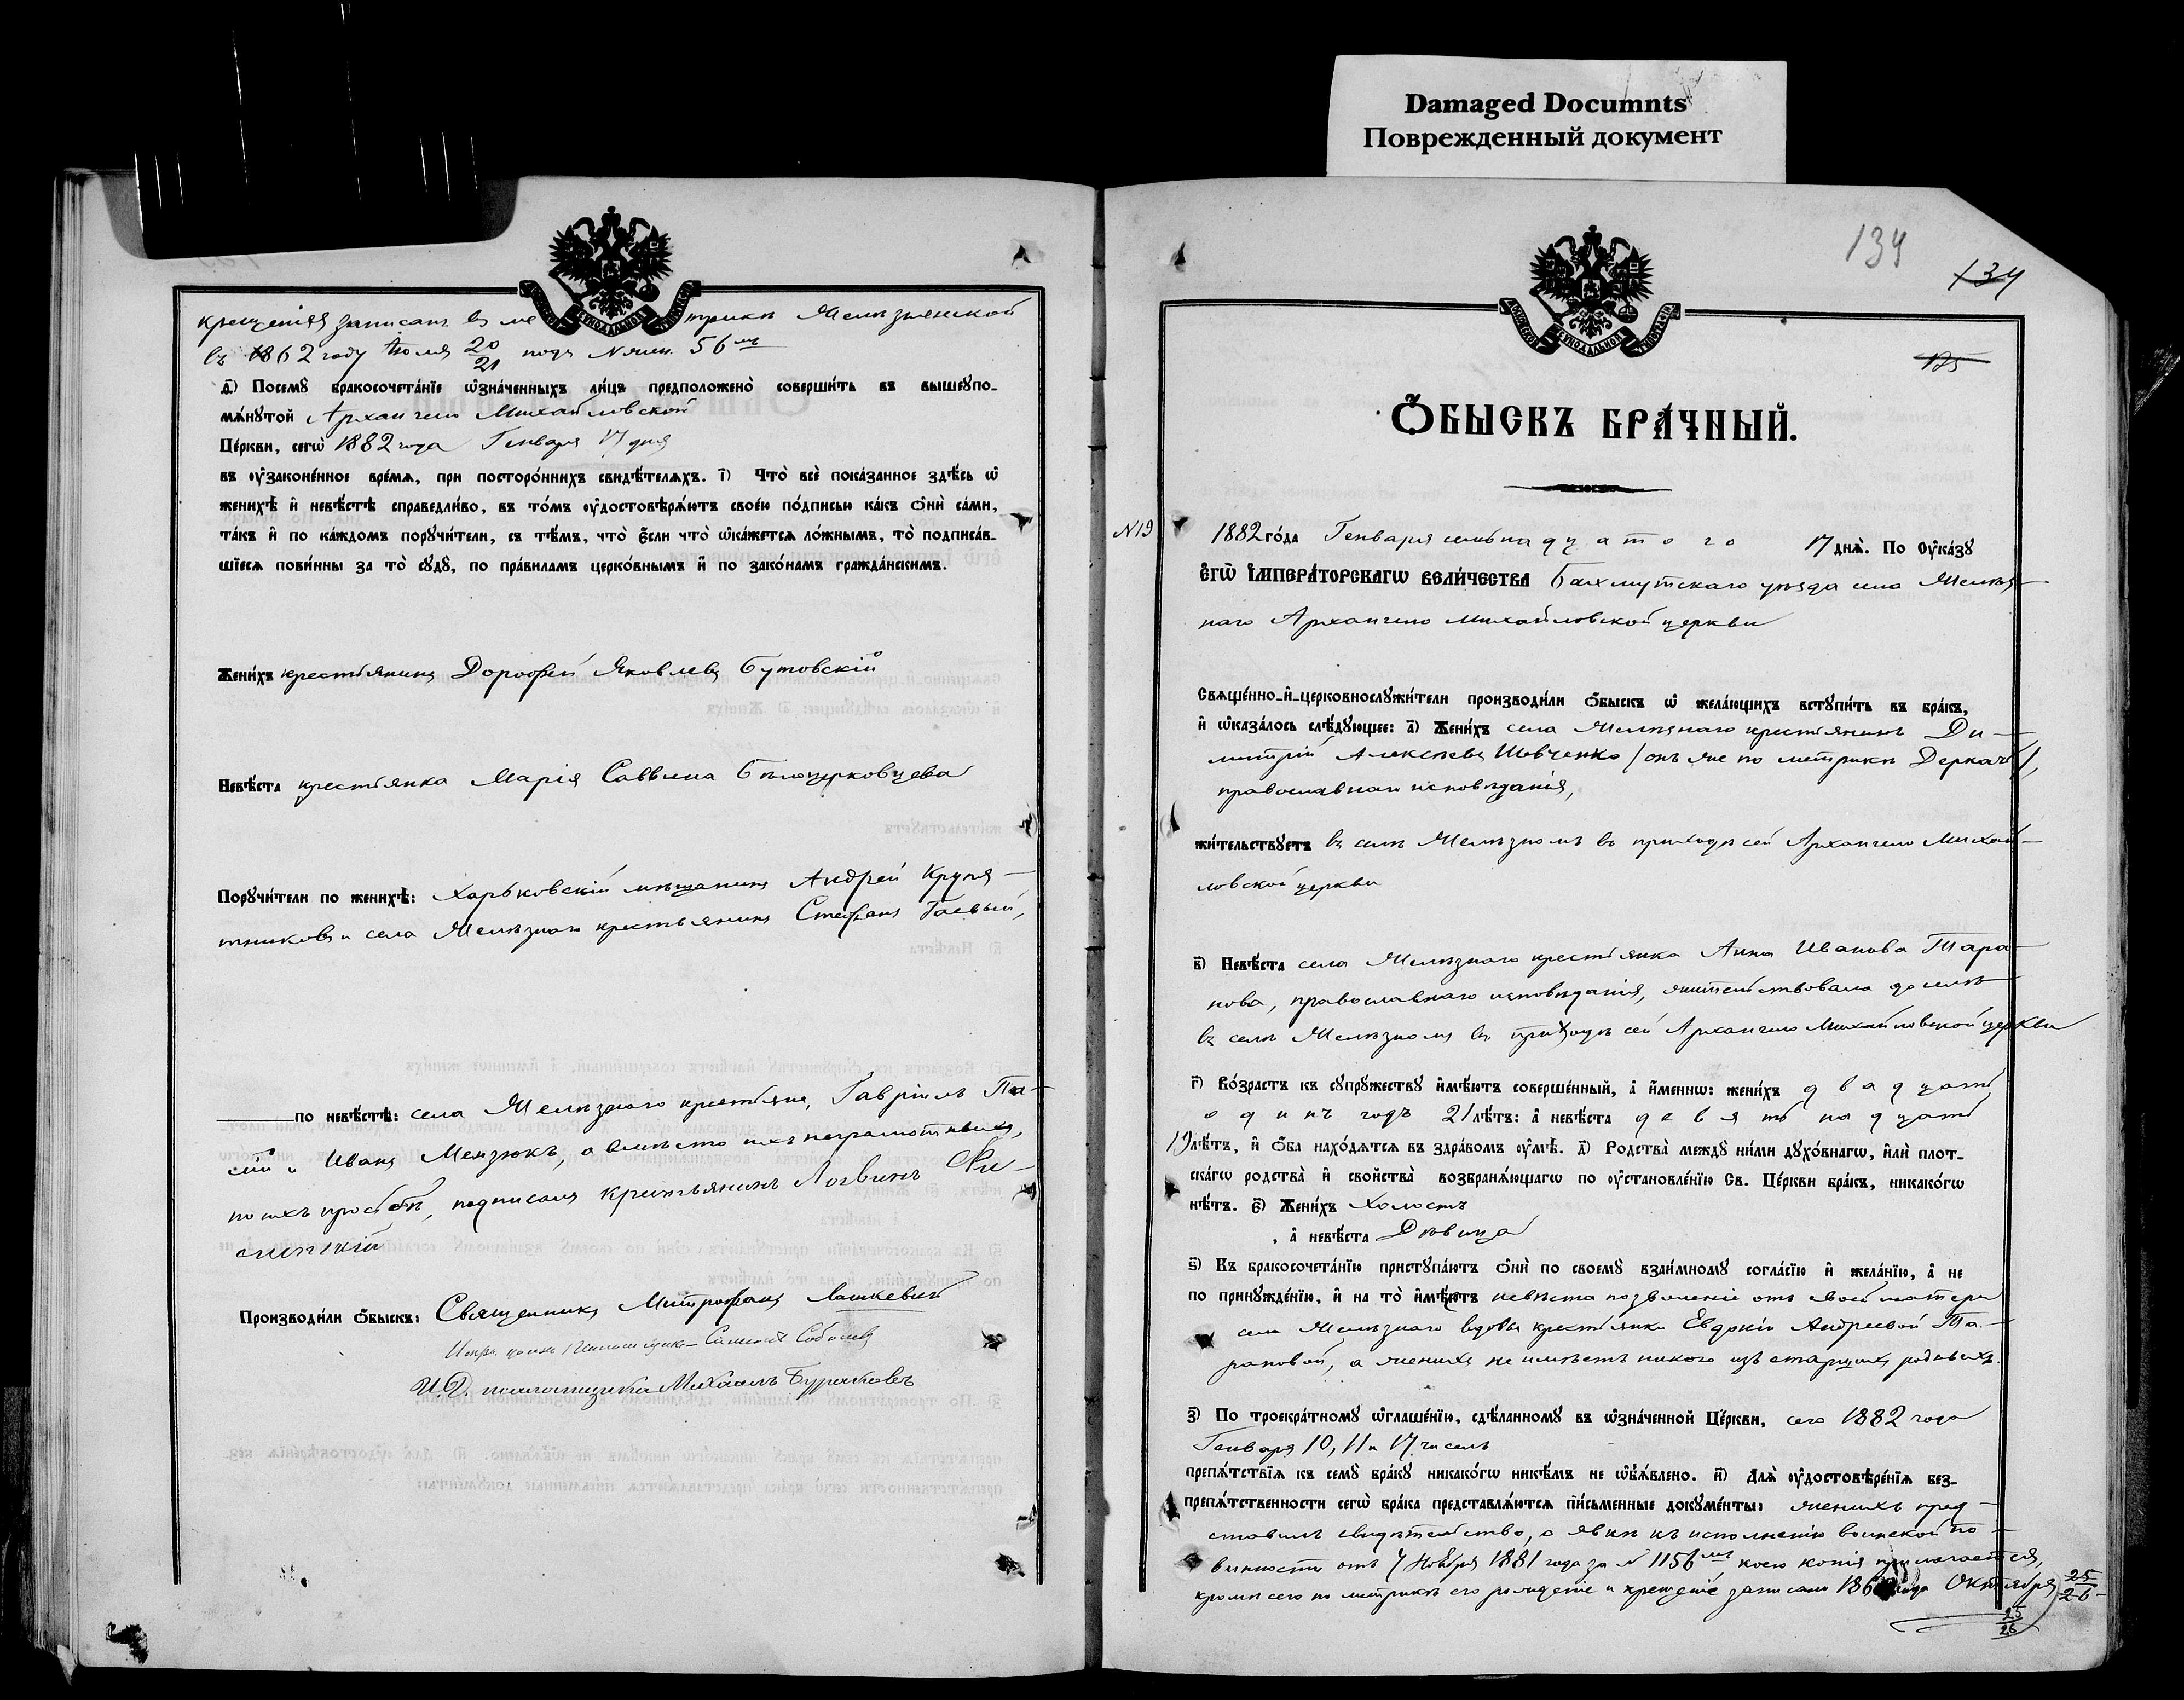 Damaged Documnts
Поврежденный документ
крещенія записанъ въ ме трикѣ Желѣзнянской
въ 1862 году Іюля 20/21 подъ № жен. 56мъ
д҃і) Посемꙋ̀ бракосочета́нїе ѡ҆зна́ченныхъ ли́цъ предположено̀ соверши́ть въ вышеꙋпо-
мѧ́нꙋтой Архангело Михайловской
Це́ркви, сегѡ̀ 1882 года Генваря 17 дня
въ ᲂу҆законе́нное вре́мѧ, при посторо́ннихъ свидѣ́телѧхъ. і҃) Что̀ всѐ пока́занное здѣ́сь ѡ҆
женихѣ̀ и҆ невѣ́стѣ справедли́во, въ то́мъ ᲂу҆достовѣрѧ́ютъ свое́ю по́дписью ка́къ ѻ҆нѝ са́ми,
та́къ и҆ по ка́ждомъ порꙋчи́тели, съ тѣ́мъ, что̀ є҆́сли что̀ ѡ҆ка́жетсѧ ло́жнымъ, то̀ подписа́в-
шїесѧ пови́нны за то̀ сꙋдꙋ̀, по пра́виламъ церко́внымъ и҆ по зако́намъ гражда́нскимъ.
Жени́хъ крестьянинъ Дорофей Яковлевъ Бутовскій
Невѣ́ста крестьянка Марія Саввина Бѣлоцерковцева
Порꙋчи́тели по женихѣ̀: Харьковскій мѣщанинъ Андрей Крупя-
тниковъ и села Желѣзнаго крестьянинъ Стефанъ Гаевый,
по невѣ́стѣ: села Желѣзнаго крестьяне, Гавріилъ Па-
сій и Иванъ Мемзюкъ, а вмѣсто ихъ неграмотныхъ,
по ихъ просьбѣ, подписался крестьянинъ Логвинъ
Производи́ли ѻ҆́быскъ: Священникъ Митрофанъ Лашкевичъ
Псаломщикъ Соболевъ
И. Д. псаломщика Михаилъ Бураковъ
134
134
125
Ѻ҆БЫСКЪ БРА́ЧНЫЙ.
№ 19
1882 го́да Генваря семьнадцатого 17 днѧ̀. По ᲂу҆ка́зꙋ
Є҆ГѠ̀ И҆МПЕРА́ТОРСКАГѠ ВЕЛИ́ЧЕСТВА Бахмутскаго уѣзда села Желѣз-
наго Архангело Михайловской церкви
Свѧще́нно-и҆-церковнослꙋжи́тели производи́ли ѻ҆́быскъ ѡ҆ жела́ющихъ встꙋпи́ть въ бра́къ,
и҆ ѡ҆каза́лось слѣ́дꙋющее: а҃) Жени́хъ села Желѣзнаго крестьянинъ Ди-
митрій Алексѣевъ Шевченко /онъ же по метрикѣ Деркачъ/,
православнаго исповѣданія,
жи́тельствꙋетъ въ селѣ Желѣзномъ въ приходѣ сей Архангело Михай-
ловской церкви
в҃) Невѣ́ста села Желѣзнаго крестьянка Анна Иванова Тара-
нова, православнаго исповѣданія, жительствовала доселѣ
въ селѣ Желѣзномъ въ приходѣ сей Архангело Михайловской церкви
г҃) Во́зрастъ къ сꙋпрꙋ́жествꙋ и҆мѣ́ютъ соверше́нный, а҆ и҆́меннѡ: жени́хъ двадцать
одинъ годъ 21 лѣ́тъ: а҆ невѣ́ста девятьнадцать
19 лѣ́тъ, и҆ ѻ҆́ба нахо́дѧтсѧ въ здра́вомъ ᲂу҆мѣ̀. д҃) Родства̀ междꙋ̀ ни́ми дꙋхо́внагѡ, и҆лѝ плот-
ска́гѡ родства̀ и҆ свойства̀ возбранѧ́ющагѡ по ᲂу҆становле́нїю Св. Це́ркви бра́къ, никако́гѡ
нѣ́тъ. є҃) Жени́хъ холостъ
, а҆ невѣ́ста Дѣвица
ѕ҃) Къ бракосочета́нїю пристꙋпа́ютъ ѻ҆нѝ по своемꙋ̀ взаи́мномꙋ согла́сїю и҆ жела́нїю, а҆ не
по принꙋжде́нїю, и҆ на то̀ и҆мѣ́етъ невѣста позволеніе отъ своей матери
села Желѣзнаго вдовы крестьянки Евдокіи Андреевой Та-
рановой, а женихъ не имѣетъ никого изъ старшихъ родныхъ.
з҃) По троекра́тномꙋ ѡ҆глаше́нїю, сдѣ́ланномꙋ въ ѡ҆зна́ченной Це́ркви, сего 1882 года
Генваря 10, 11 и 17 чиселъ
препѧ́тствїѧ къ семꙋ̀ бра́кꙋ никако́гѡ никѣ́мъ не ѡ҆б̾ѧ́влено. и҃) Длѧ̀ ᲂу҆достовѣре́нїѧ без-
препѧ́тственности сегѡ̀ бра́ка представлѧ́ютсѧ пи́сьменные докꙋме́нты: женихъ пред-
ставилъ свидѣтельство, о явкѣ къ исполненію воинской по-
винности отъ 7 Ноября 1881 года за № 1156мъ, коего копія прилагается,
кромѣ сего по метрикѣ его рожденіе и крещеніе записано 186 года Октября 25/26
25/26